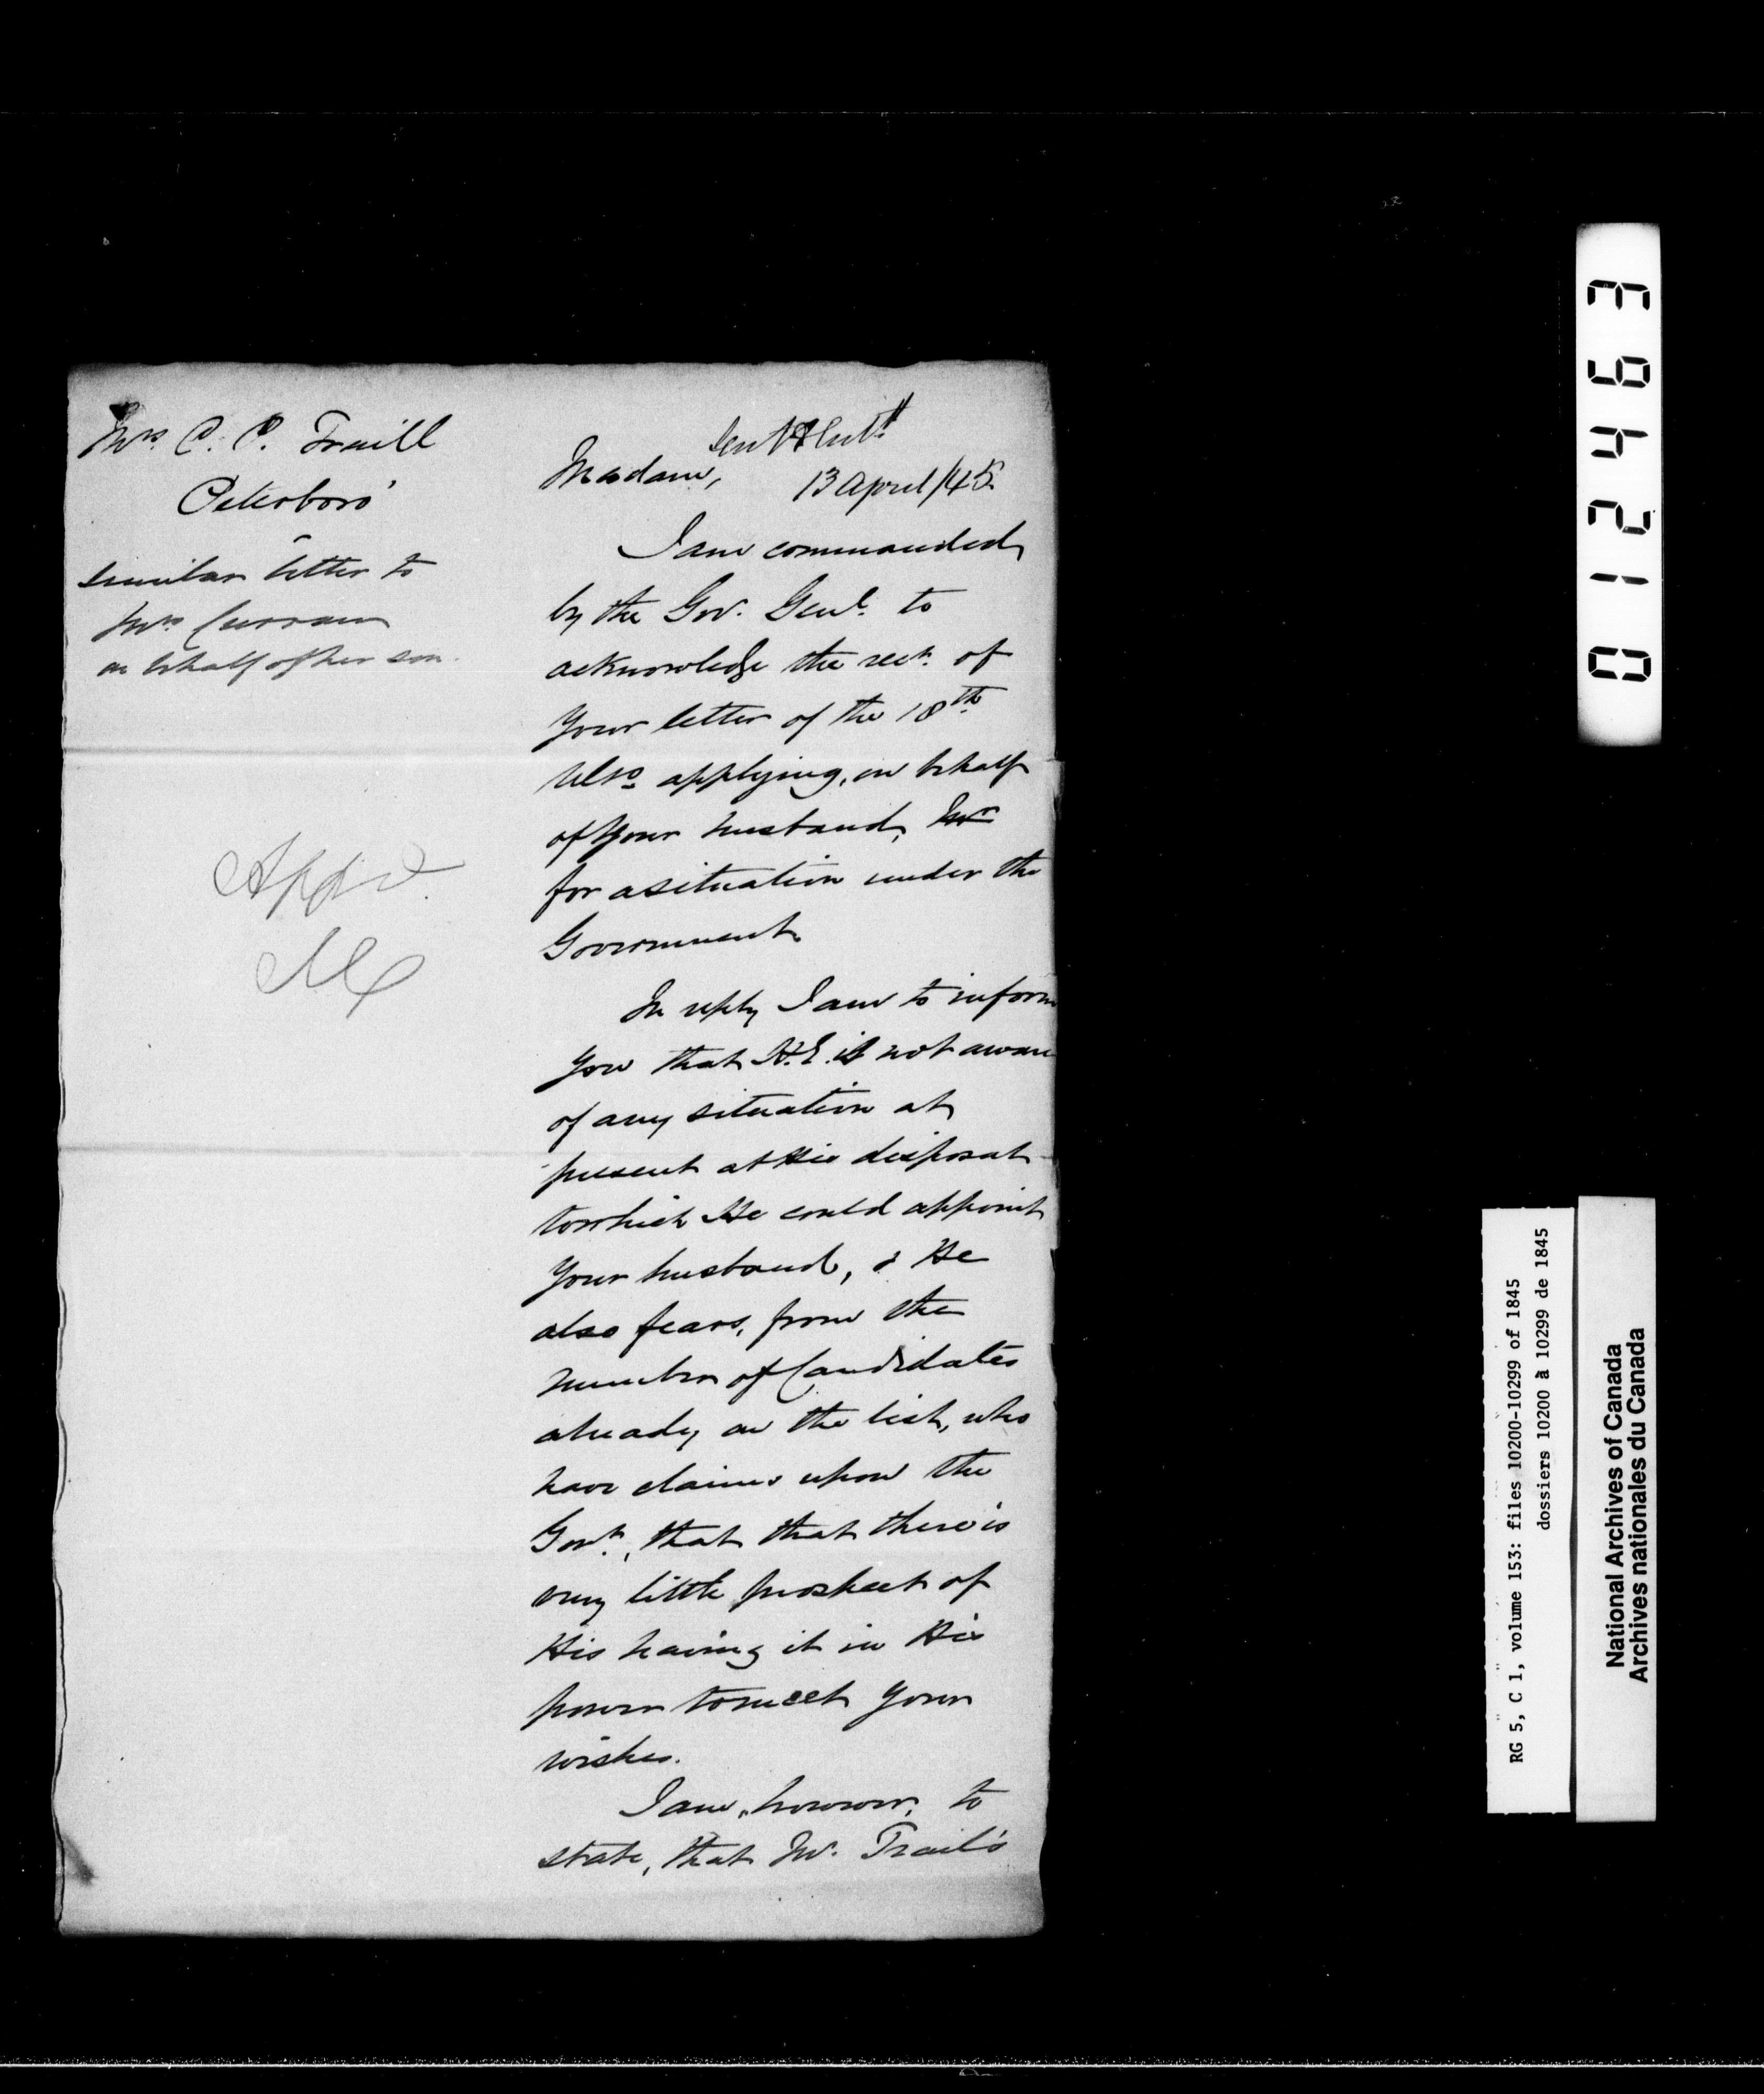 Mrs. C. P. Traill
Peterboro'
similar letter to
Mrs Curran
on behalf of her son.
Appd.
M
13 April /45
Madam,
I am commanded
by the Gov. Genl. to
acknowledge the rect. of
your letter of the 18th
Ulto. applying, on behalf
of your husband, Mr
for a situation under the
Government.
In reply I am to inform
you that H.E. is not aware
of any situation at
present at His disposal
to which He could appoint
your husband, & He
also fears, from the
number of Candidates
already on the list, who
have claims upon the
Govt., that that there is
very little prospect of
His having it in His
power to meet your
wishes.
I am, however, to
state, that Mr. Trail's
012463
RG 5, C 1, volume 153: files 10200-10299 of 1845
dossiers 10200 à 10299 de 1845
National Archives of Canada
Archives nationales du Canada